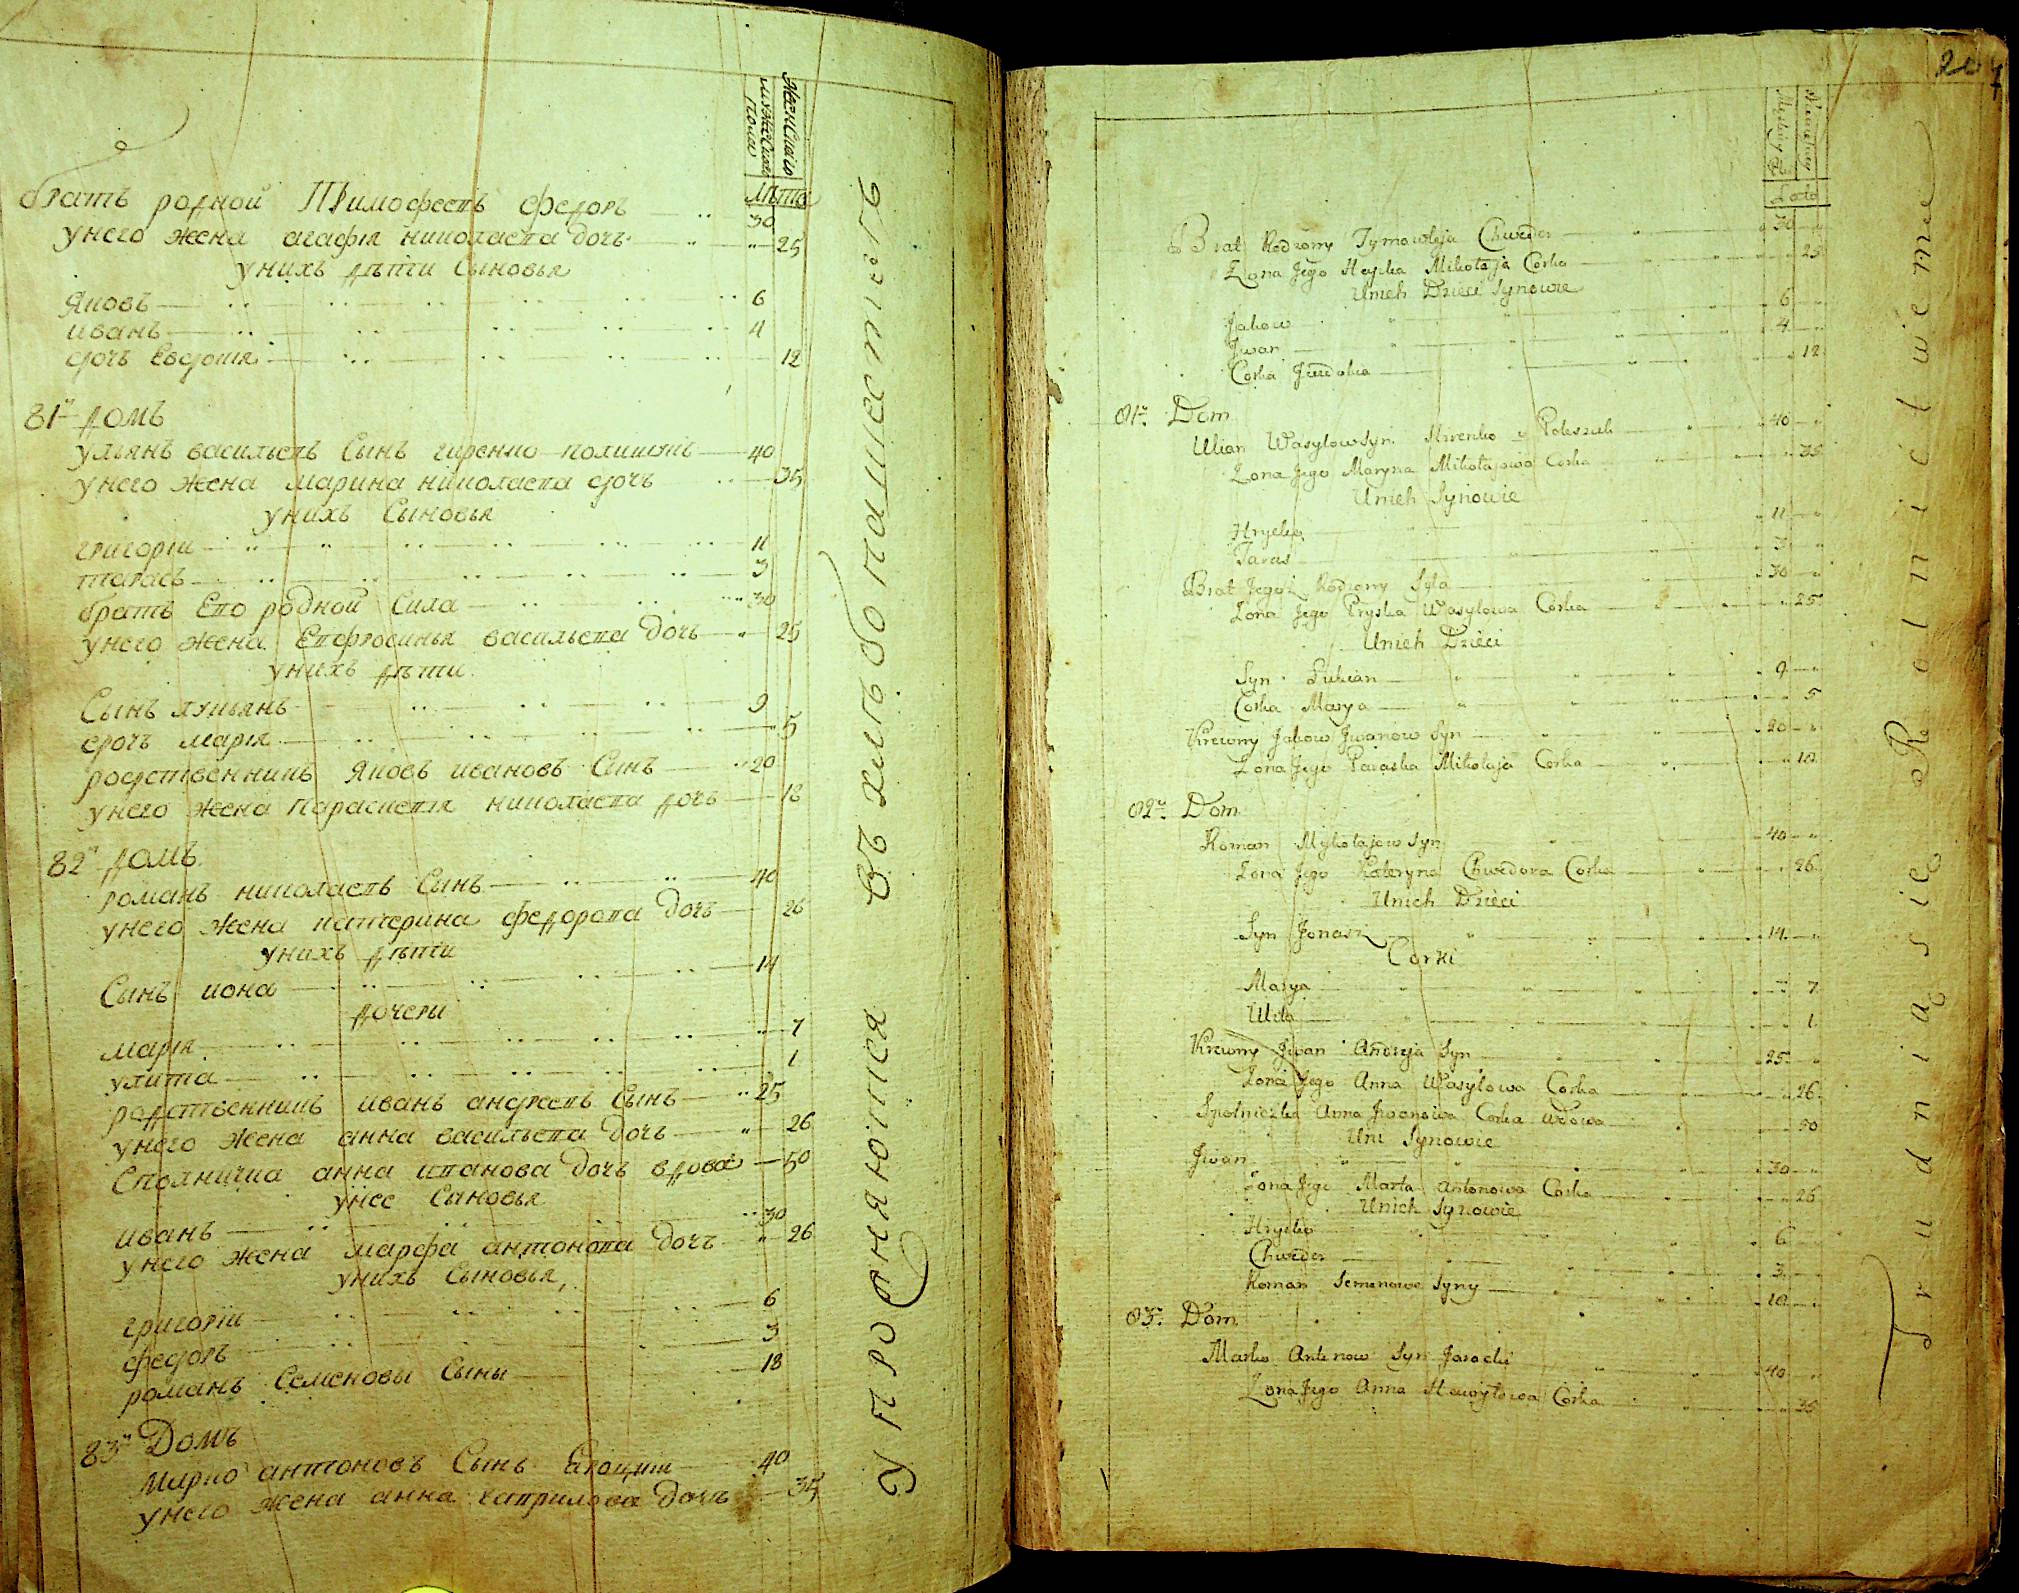 Женскаго
мужеска
пола
лѣта
братъ родной Тимофеевъ Федоръ 30
унего жена агафія николаева дочь 25
унихъ дѣти Сыновья
Яковъ 6
иванъ 4
дочь Евдокія 12
81й домъ
ульянъ васильевъ Сынъ гиренко 40
унего жена марина николаева дочь 35
унихъ Сыновья
григоріи 11
тарасъ 3
братъ Его родной Сила 30
унего жена Ефросинья васильева дочь 25
унихъ дѣти
Сынъ лукьянъ 9
дочь марія 5
родственникъ Яковъ ивановъ Сынъ 20
унего жена Парасковія николаева дочь 18
82й домъ
романъ николаевъ Сынъ 40
унего жена катерина федорова дочь 26
унихъ дѣти
Сынъ иона 14
дочери
марія 7
улита 1
родственникъ иванъ андреевъ Сынъ 25
унего жена анна васильева дочь 26
Сполничка анна иванова дочь вдова 50
унее Сыновья
иванъ 30
унего жена марфа антонова дочь 26
унихъ Сыновья
григоріи 6
федоръ 3
романъ Семеновы Сыны 18
83й Домъ
Марко антоновъ Сынъ 40
унего жена анна гаврилова дочь 35
упрожняются въ хлѣбопашестиѣ
Lata
Brat Rodzony Tymowieja Chwedor 30
Zona Jego Hapka Mikołaja Corka 25
Unich Dzieci Synowie
Jakow 6
Jwan 4
Corka Jewdokia 12
81. Dom
Ulian Wasylow Syn Hirenko y Poleszuk 40
Zona Jego Maryna Mikołajowa Corka 35
Unich Synowie
Hryćko 11
Taras 3
Brat Jegoż Rodzony Syła 30
Zona Jego Pryska Wasylowa Corka 25
Unich Dzieci
Syn Łukian 9
Corka Marya 5
Krewny Jakow Jwanow Syn 20
Zona Jego Paraska Mikołaja Corka 18
82. Dom
Roman Mykołajow Syn 40
Zona Jego Kateryna Chwedora Corka 26
Unich Dzieci
Syn Jonasz 14
Corki
Marya 7
Ulita 1
Krewny Jwan Andreja Syn 25
Zona Jego Anna Wasylowa Corka 26
Społniczka Anna Jwanowa Corka wdowa 50
Uni Synowie
Jwan 30
Zona Jego Marta Antonowa Corka 26
Unich Synowie
Hryćko 6
Chwedor 3
Roman Semenowe Syny 18
83. Dom
Marko Antonow Syn Jarocki 40
Zona Jego Anna Hawryłowa Corka 35
Trudnią się Rolnictwiemie